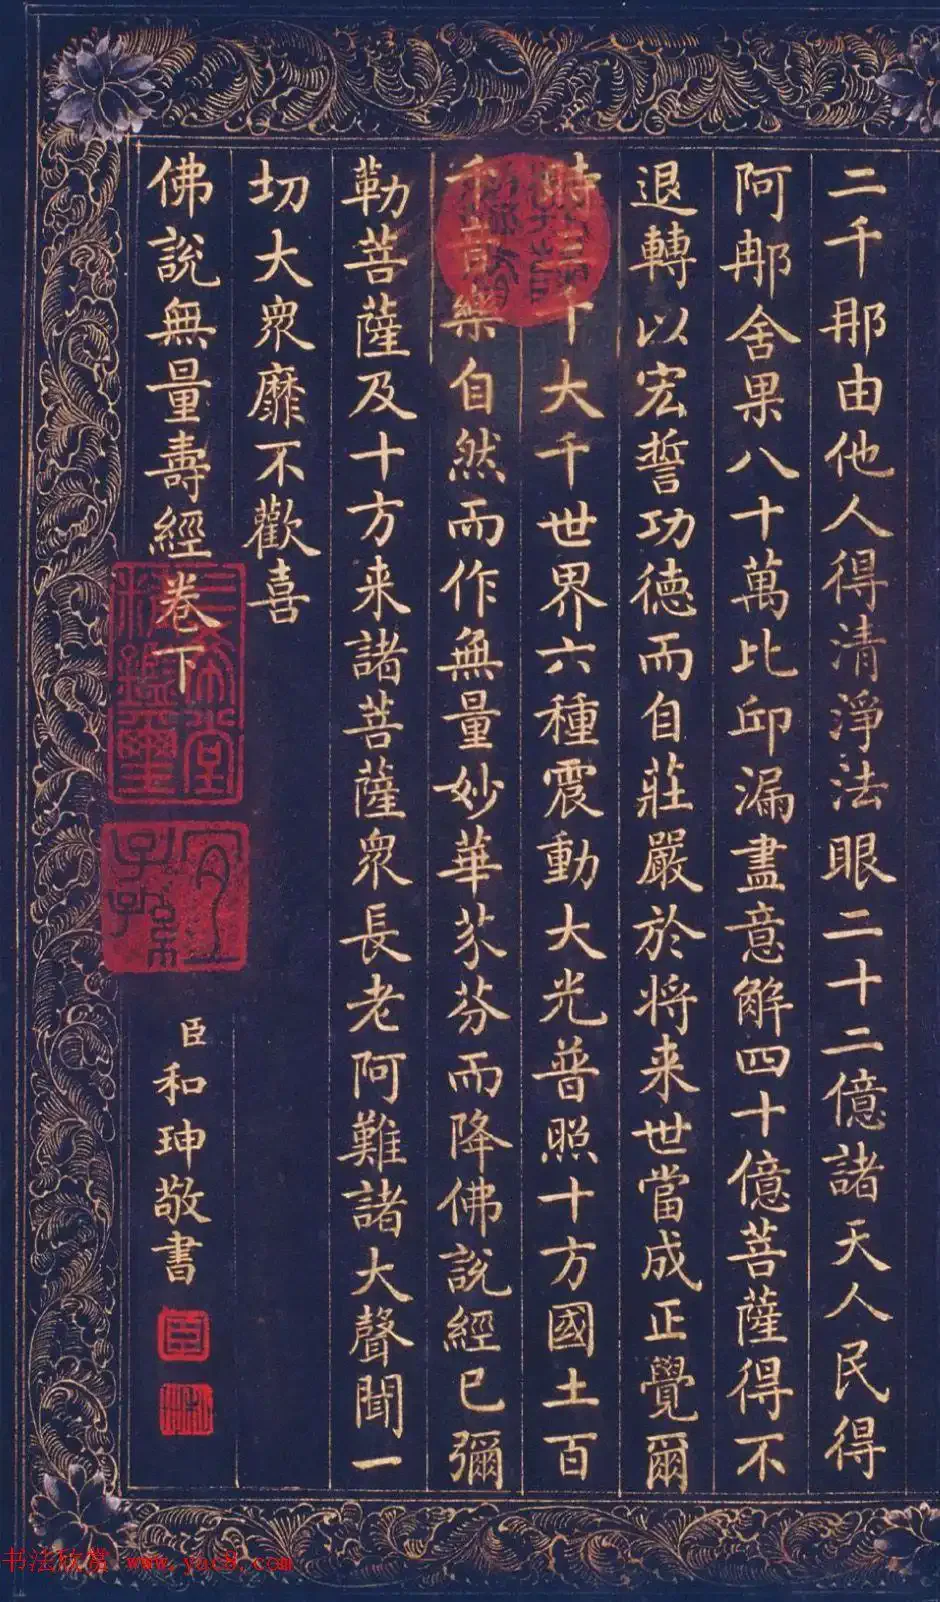 二千那由他人得清淨法眼二十二億諸天人民得
阿那舍果八十萬比邱漏盡意解四十億菩薩得不
退轉以宏誓功德而自莊嚴於將来世當成正覺爾
時三千大千世界六種震動大光普照十方國土百
千音樂自然而作無量妙華芬芬而降佛說經已彌
勒菩薩及十方来諸菩薩衆長老阿難諸大聲聞一
切大衆靡不歡喜
佛說無量壽經卷下
臣和珅敬書
三希堂
精鑑璽
宜
子孫
臣
和
书法欣赏 www.yac8.com